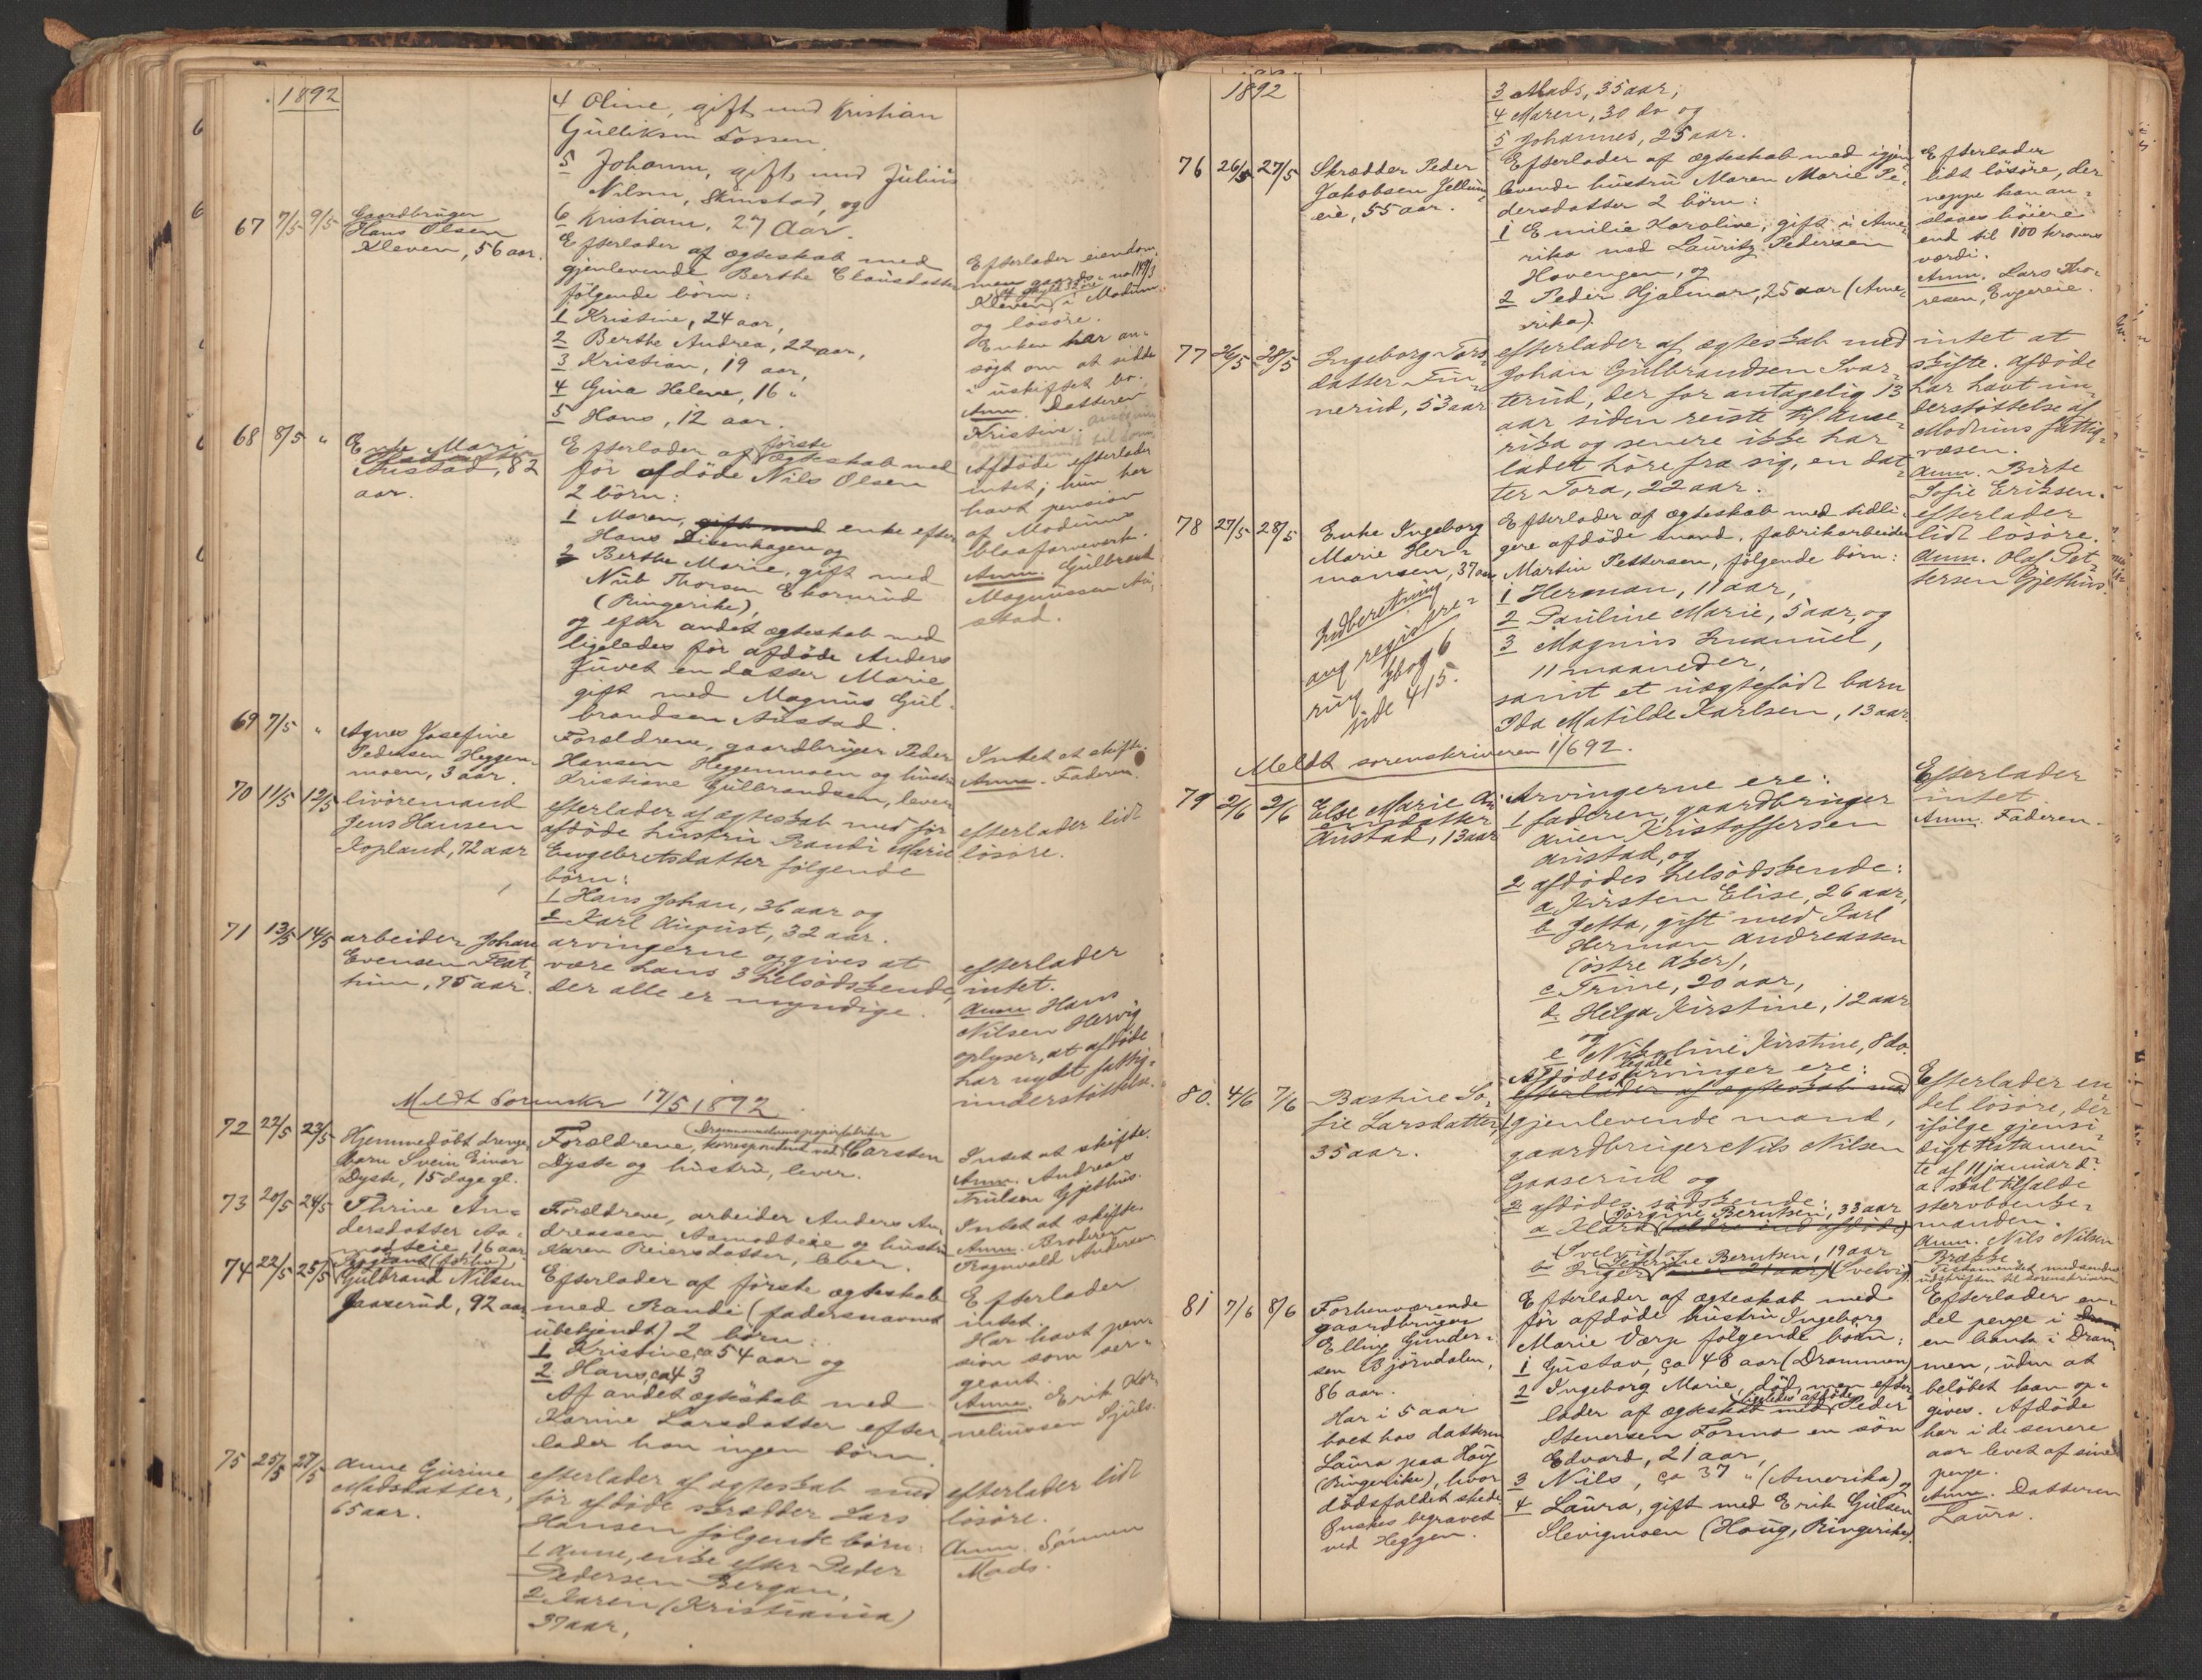 1892
4 Oline, gift med Kristian
Gulliksen Fossen
5 Johanne, gift med Julius
Nilsen, Skinstad, og
6 Kristiane, 27 Aar.
67 7/5 9/5 Gaardbruger
Hans Olsen
Kleven, 56 aar.
Efterlader af ægteskab med
gjenlevende Berthe Clausdatter
følgende børn:
1 Kristine, 24 aar,
2 Berthe Andrea, 22 aar,
3 Kristian, 19 aar,
4 Gina Helene, 16 "
5 Hans, 12 aar.
Efterlader eiendom-
men gaards-no 119/3
Kleven i Modum
og løsøre.
Enken har an-
søgt om at sidde
i uskiftet bo.
Anm. Datteren
Kristine.
68 8/5 " Enke Mari
Austad, 82
aar.
Efterlader af første ægteskab med
før afdøde Nils Olsen
2 børn:
1 Maren, gift med enke efter
Hans Disenhagen og
2 Berthe Marie, gift med
Nub Thorsen Ekornrud
(Ringerike),
og efter andet ægteskab med
ligeledes før afdøde Anders
Juvet en datter Marie
gift med Magnus Gul-
brandsen Austad.
Afdøde efterlader
intet; hun har
havt pension
af Modums
blaafarveverk.
Anm. Gulbrand
Magnussen Au-
stad.
69 7/5 " Agnes Josefine
Pedersen Heggen-
moen, 3 aar.
Forældrene, gaardbruger Peder
Hansen Heggenmoen og hustru
Kristiane Gulbrandsen, lever
Intet at skifte.
Anm. Faderen.
70 11/5 12/5 livøremand
Jens Hansen
Kopland, 72 aar
efterlader af ægteskab med før
afdøde hustru Randi Marie
Engebretsdatter følgende
børn:
1 Hans Johan, 36 aar og
2 Karl August, 32 aar.
efterlader lidt
løsøre.
71 13/5 14/5 arbeider Johan
Evensen Flat-
hun, 75 aar.
arvingerne opgives at
være hans 3 helsødskende,
der alle er myndige.
efterlader
intet.
Anm Hans
Nilsen Hervig
oplyser, at afdøde
har nydt fattig-
understøttelse.
Meldt Sorenskr 17/5 1892
72 22/5 23/5 Hjemmedøbt drenge-
barn Svein Einar
Dyste, 15 dage gl.
Forældrene, korrespondent ved Drammenselvens papirfabriker Carsten
Dyste og hustru, lever.
Intet at skifte.
Anm. Andreas
Trulsen Gjethus.
73 20/5 24/5 Thrine An-
dersdatter Aa-
modteie, 16 aar
Forældrene, arbeider Anders An-
dreassen Aamodteie og hustru
Karen Reiersdatter, lever.
Intet at skifte.
Anm. Broderen
Ragnvald Andersen
74 22/5 25/5 Gulbrand Nilsen
Gaaserud, 92 aar
Efterlader af første ægteskab
med Randi (fadersnavnet
ubekjendt) 2 børn:
1 Kristine, ca 54 aar og
2 Hans, ca 43
Af andet ægteskab med
Karine Larsdatter efter-
lader han ingen børn.
Efterlader
intet.
Har havt pen-
sion som ser-
geant.
Anm. Erik Kor-
neliussen Sjuls-
75 25/5 27/5 Anne Gurine
Madsdatter,
65 aar.
efterlader af ægteskab med
før afdøde skrædder Lars
Hansen følgende børn:
1 Anne, enke efter Peder
Pedersen Bergan,
2 Karen (Kristiania)
37 aar,
efterlader lidt
løsøre.
Anm. Sønnen
Mads.
1892
3 Mads, 35 aar;
4 Maren, 30 do og
5 Johannes, 25 aar.
76 26/5 27/5 Skrædder Peder
Jakobsen Jellum-
eie, 55 aar.
Efterlader af ægteskab med igjen-
levende hustru Maren Marie Pe-
dersdatter 2 børn:
1 Emilie Karoline, gift i Ame-
rika med Lauritz Pedersen
Hovengen, og
2 Peder Hjalmar, 25 aar (Ame-
rika).
Efterlader
lidt løsøre, der
neppe kan an-
slages høiere
end til 100 kroners
værdi.
Anm. Lars Tho-
resen, Engereie.
77 26/5 28/5 Ingeborg Tors-
datter Fin-
nerud, 53 aar
efterlader af ægteskab med
Johan Gulbrandsen Svar-
terud, der for antagelig 13
aar siden reiste til Ame-
rika og senere ikke har
ladet høre fra sig, en dat-
ter Tora, 22 aar.
intet at
skifte. Afdøde
har havt un-
derstøttelse af
Modums fattig-
væsen.
Anm. Birte
Sofie Eriksen.
78 27/5 28/5 Enke Ingeborg
Marie Her-
mansen, 37 aar
Indberetning
ang registre-
ring Kbog 6
side 415.
Efterlader af ægteskab med tidli-
gere afdøde mand, fabrikarbeider
Martin Pettersen, følgende børn:
1 Herman, 11 aar,
2 Pauline Marie, 5 aar, og
3 Magnus Emanuel,
11 maaneder,
samt et uægtefødt barn
Ida Matilde Karlsen, 13 aar.
efterlader
lidt løsøre.
Anm. Olaf Pet-
tersen Gjethus.
Meldt sorenskriveren 1/6 92.
79 2/6 2/6 Else Marie Au-
ensdatter
Austad, 13 aar
Arvingerne ere:
1 faderen, gaardbruger
Auen Kristoffersen
Austad, og
2 afdødes helsødskende:
a Kirsten Elise, 26 aar,
b Jetta, gift med Karl
Herman Andreassen
(østre Aker),
c Trine, 20 aar,
d. Helga Kirstine, 12 aar
og
e Nikoline Kirstine, 8 do.
Efterlader
intet.
Anm. Faderen.
80. 4/6 7/6 Bastine So-
fie Larsdatter,
35 aar.
Afdødes legale arvinger ere:
efterlader af ægteskab med
1 gjenlevende mand,
gaardbruger Nils Nilsen
Gaaserud og
2 afdødes sødskende:
a Klara Jørgine Berntsen, 33 aar
(Svelvig) og
b Inger Berntsen, 19 aar (Svelvig)
Efterlader en
del løsøre, der
ifølge gjensi-
digt testamen-
te af 11 januar d.
a. skal tilfalde
stervboenke-
manden.
Anm. Nils Nilsen
Brække
Testamentet medsendes
udskriften til sorenskriveren
81 7/6 8/6 Forhenværende
gaardbruger
Elling Gunder-
sen Bjørndalen,
86 aar.
Har i 5 aar
boet hos datteren
Laura paa Houg
(Ringerike), hvor
dødsfaldet skede.
Ønskes begravet
ved Heggen.
Efterlader af ægteskab med
før afdøde hustru Ingeborg
Marie Værp følgende børn:
1 Gustav, ca 48 aar (Drammen)
2 Ingeborg Marie, død, men efter-
lader af ægteskab med ligeledes afdøde Peder
Stenersen Formo en søn
Edvard, 21 aar,
3 Nils, ca 37 " (Amerika) og
4 Laura, gift med Erik Gulsen
Slevigmoen (Houg, Ringerike).
Efterlader en-
del penge i
en bank i Dram-
men, uden at
beløbet kan op-
gives. Afdøde
har i de senere
aar levet af sine
penge.
Anm. Datteren
Laura.